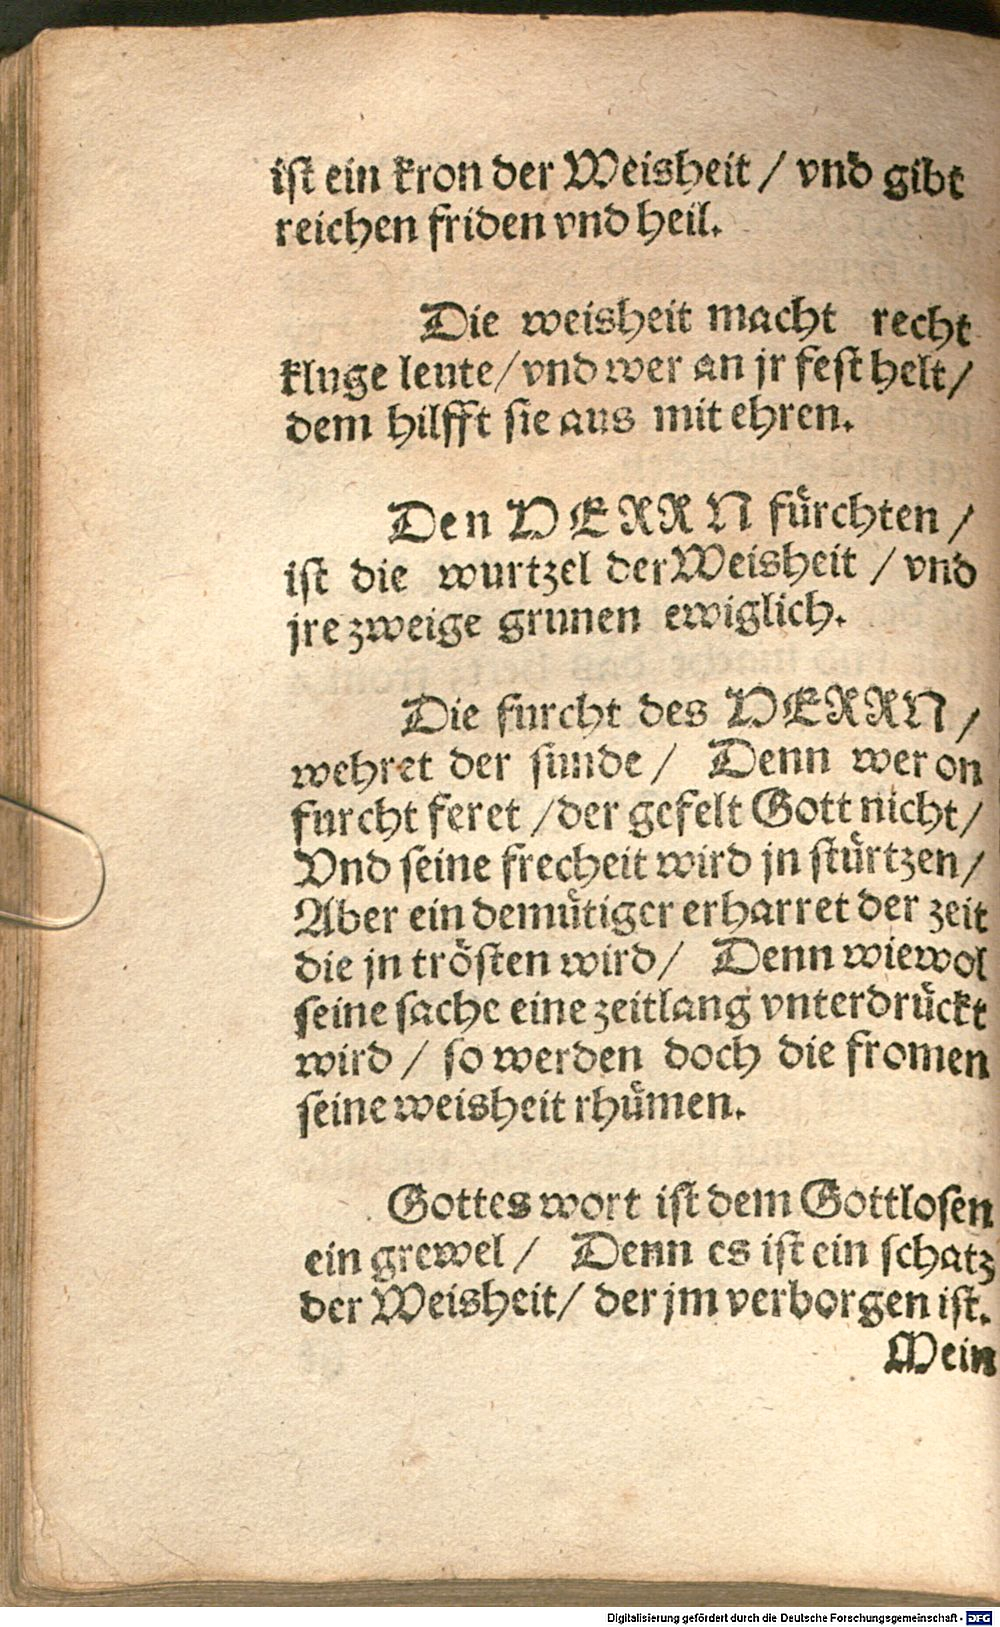 ist ein kron der Weisheit / vnd gibt
reichen friden vnd heil.
Die weisheit macht recht
kluge leute / vnd wer an jr fest helt /
dem hilfft sie aus mit ehren.
Den HERRN fürchten /
ist die wurtzel der Weisheit / vnd
jre zweige grunen ewiglich.
Die furcht des HERRN /
wehret der sunde / Denn wer on
furcht feret / der gefelt Gott nicht /
Vnd seine frecheit wird jn stürtzen /
Aber ein demütiger erharret der zeit
die jn trösten wird / Denn wiewol
seine sache eine zeitlang vnterdrückt
wird / so werden doch die fromen
seine weisheit rhümen.
Gottes wort ist dem Gottlosen
ein grewel / Denn es ist ein schatz
der Weisheit / der jm verborgen ist.
Mein
Digitalisierung gefördert durch die Deutsche Forschungsgemeinschaft - DFG